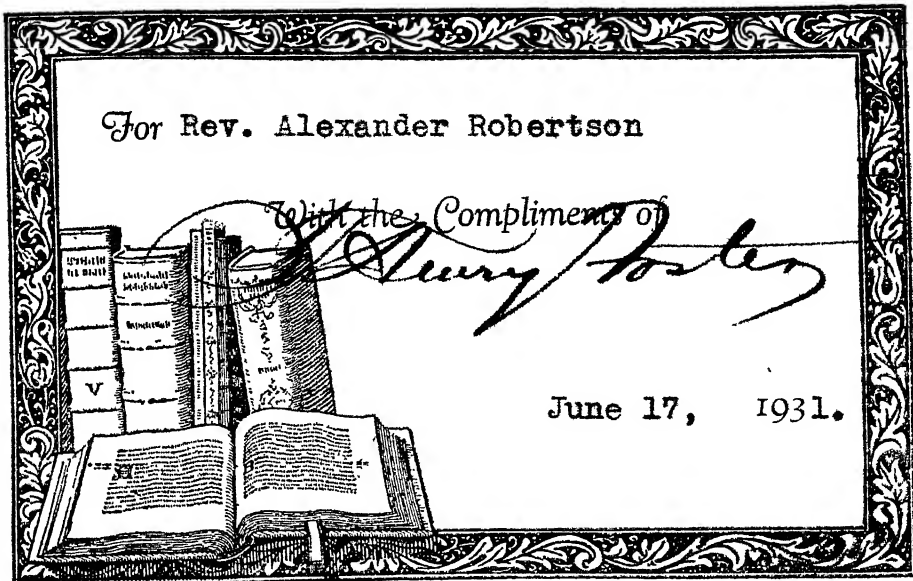 For Rev. Alexander Robertson
With the Compliments of
Henry Foster
June 17, 1931.
V